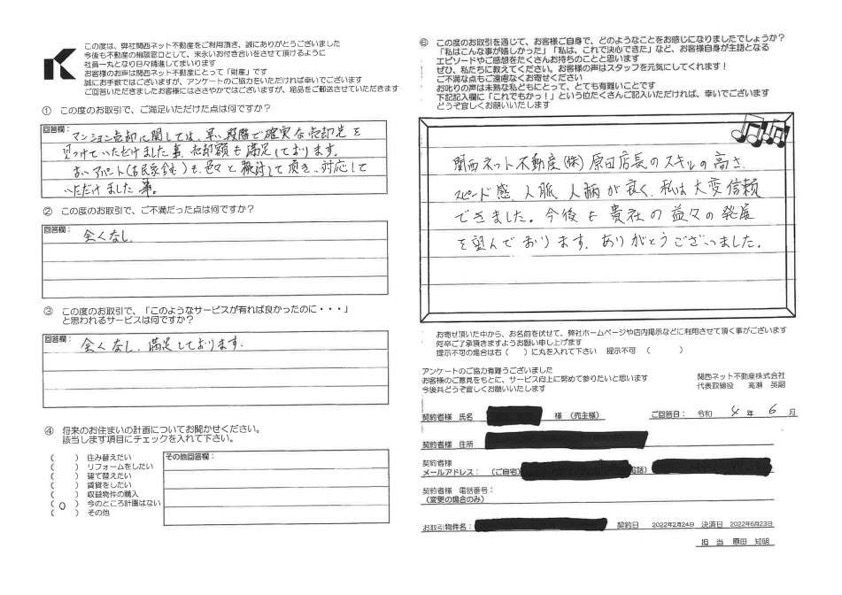 この度は、弊社関西ネット不動産をご利用頂き、誠にありがとうございました
今後も不動産の相談窓口として、末永いお付き合いをさせて頂けるように
社員一丸となり日々精進してまいります
お客様のお声は関西ネット不動産にとって「財産」です
誠にお手数ではございますが、アンケートのご協力をいただければ幸いでございます
ご回答いただきましたお客様にはささやかではございますが、粗品をご郵送させていただきます
① この度のお取引で、ご満足いただけた点は何ですか？
回答欄：
マンション売却に関しては、早い段階で確実な売却先を
見つけていただけました事、売却額も満足しております。
も色々と検討して頂き、対応して
いただけました事。
② この度のお取引で、ご不満だった点は何ですか？
回答欄： 全くなし。
③ この度のお取引で、「このようなサービスが有れば良かったのに・・・」
と思われるサービスは何ですか？
回答欄： 全くなし。満足しております。
④ 将来のお住まいの計画についてお聞かせください。
該当します項目にチェックを入れて下さい。
（　　）住み替えたい
（　　）リフォームをしたい
（　　）建て替えたい
（　　）賃貸をしたい
（　　）収益物件の購入
（　○　）今のところ計画はない
（　　）その他
その他回答欄：
⑥ この度のお取引を通じて、お客様ご自身で、どのようなことをお感じになりましたでしょうか？
「私はこんな事が嬉しかった」「私は、これで決心できた」など、お客様自身が主語となる
エピソードやご感想をたくさんお持ちのことと思います
ぜひ、私たちに教えてください。お客様の声はスタッフを元気にしてくれます！
ご不満な点もご遠慮なくお寄せください
お叱りの声は未熟な私どもにとって、とても有難いことです
下記記入欄に「これでもかっ！」という位たくさんご記入いただければ、幸いでございます
どうぞ宜しくお願いいたします
関西ネット不動産(株)原田店長のスキルの高さ、
スピード感、人脈、人柄が良く、私は大変信頼
できました。今後も貴社の益々の発展
を望んでおります。ありがとうございました。
お寄せ頂いた中から、お名前を伏せて、弊社ホームページや店内掲示などに利用させて頂く事がございます
何卒ご了承頂きますようお願い申し上げます
提示不可の場合は右（　）に丸を入れて下さい　提示不可　（　　）
アンケートのご協力有難うございました
お客様のご意見をもとに、サービス向上に努めて参りたいと思います
今後共どうぞ宜しくお願いいたします
関西ネット不動産株式会社
代表取締役　高瀬　英嗣
契約者様 氏名　様（売主様）　ご回答日：　令和　4　年　6　月
契約者様 住所
契約者様
メールアドレス：（ご自宅）
契約者様 電話番号：
（変更の場合のみ）
お取引物件名：　契約日　2022年2月24日　決済日　2022年6月23日
担　当　原田　知明